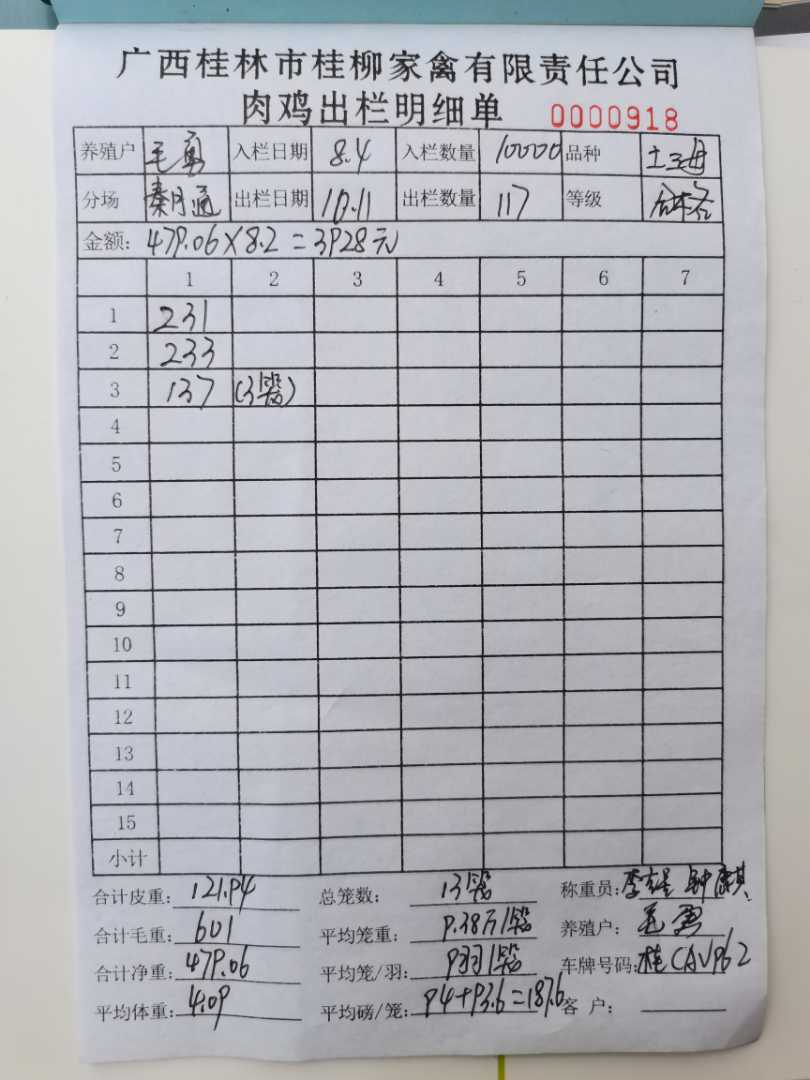 广西桂林市桂柳家禽有限责任公司
肉鸡出栏明细单 0000918
养殖户 毛勇 入栏日期 8.4 入栏数量 10000 品种 土三母
分场 秦月通 出栏日期 10.11 出栏数量 117 等级 合格
金额: 479.06×8.2=3928元
1 2 3 4 5 6 7
1 231
2 233
3 137 (3笼)
4
5
6
7
8
9
10
11
12
13
14
15
小计
合计皮重: 121.94 总笼数: 13笼 称重员: 钟麒
合计毛重: 601 平均笼重: 9.38斤/笼 养殖户: 毛勇
合计净重: 479.06 平均笼/羽: 9羽/笼 车牌号码: 桂CAV962
平均体重: 4.09 平均磅/笼: 94+93.6=187.6 客 户: